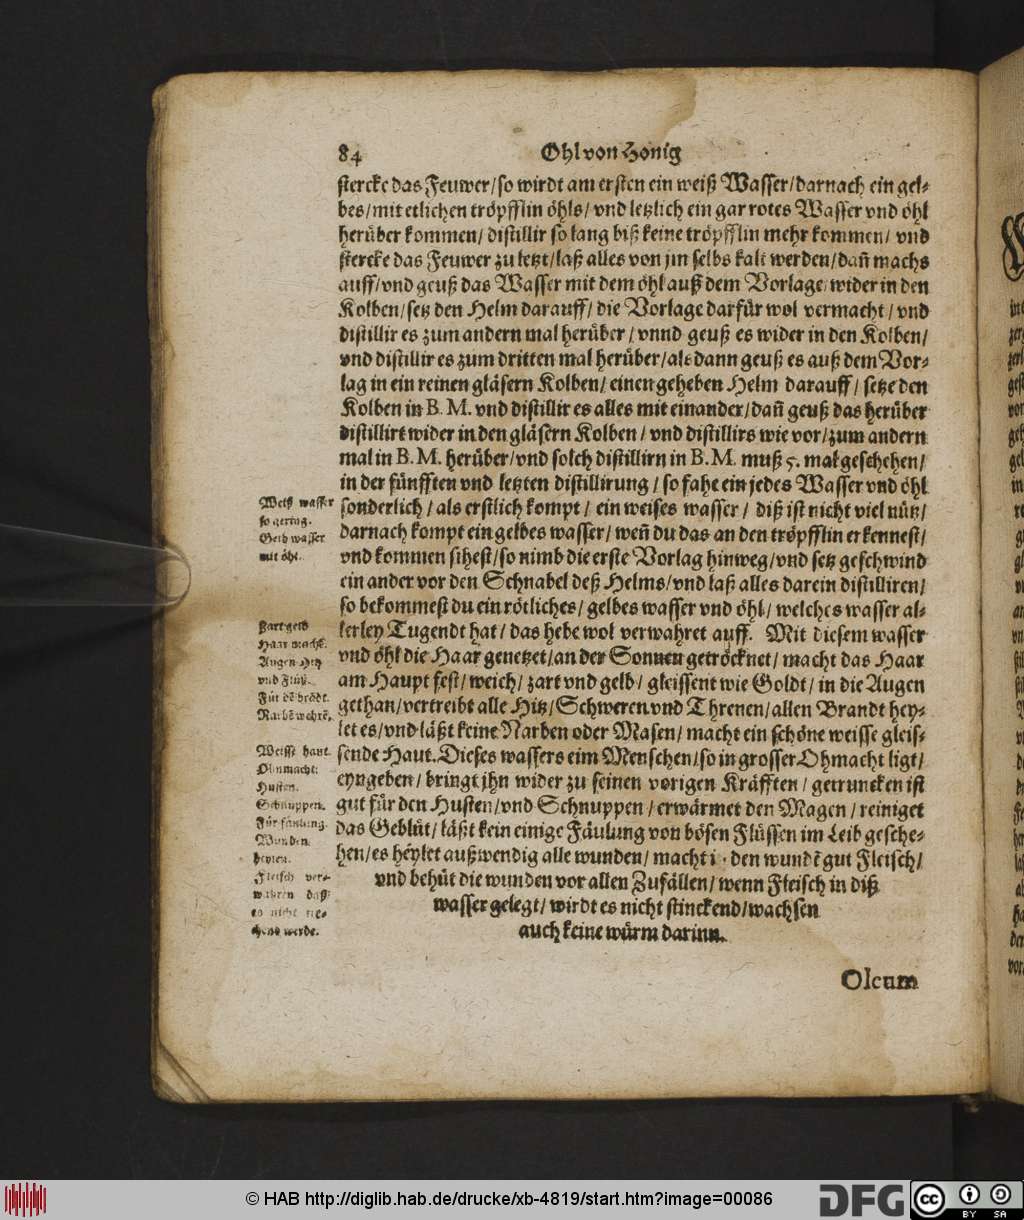 84 Ohl von Honig
stercke das Feuwer/so wirdt am ersten ein weiß Wasser/darnach ein gel-
bes/mit etlichen tröpfflin öhls/vnd letzlich ein gar rotes Wasser vnd öhl
herüber kommen/distillir so lang biß keine tröpfflin mehr kommen/vnd
stercke das Feuwer zu letzt/laß alles von jm selbs kalt werden/dañ machs
auff/vnd geuß das Wasser mit dem öhl auß dem Vorlage/wider in den
Kolben/setz den Helm darauff/die Vorlage darfür wol vermacht/vnd
distillir es zum andern mal herüber/vnnd geuß es wider in den Kolben/
vnd distillir es zum dritten mal herüber/als dann geuß es auß dem Vor-
lag in ein reinen gläsern Kolben/einen geheben Helm darauff/setze den
Kolben in B. M. vnd distillir es alles mit einander/dañ geuß das herüber
distillirt wider in den gläsern Kolben/vnd distillirs wie vor/zum andern
mal in B. M. herüber/vnd solch distillirn in B. M. muß 5. mal geschehen/
in der fünfften vnd letzten distillirung/so fahe ein jedes Wasser vnd öhl
sonderlich/als erstlich kompt/ein weises wasser/diß ist nicht viel nütz/
darnach kompt ein gelbes wasser/weñ du das an den tröpfflin erkennest/
vnd kommen sihest/so nimb die erste Vorlag hinweg/vnd setz geschwind
ein ander vor den Schnabel deß Helms/vnd laß alles darein distilliren/
so bekommest du ein rötliches/gelbes wasser vnd öhl/welches wasser al-
lerley Tugendt hat/das hebe wol verwahret auff. Mit diesem wasser
vnd öhl die Haar genetzet/an der Sonnen getröcknet/macht das Haar
am Haupt fest/weich/zart vnd gelb/gleissent wie Goldt/in die Augen
gethan/vertreibt alle Hitz/Schweren vnd Threnen/allen Brandt hey-
let es/vnd läßt keine Narben oder Masen/macht ein schöne weisse gleis-
sende Haut. Dieses wassers eim Menschen/so in grosser Ohmacht ligt/
eyngeben/bringt jhn wider zu seinen vorigen Kräfften/getruncken ist
gut für den Husten/vnd Schnuppen/erwärmet den Magen/reiniget
das Geblüt/läßt kein einige Fäulung von bösen Flüssen im Leib gesche-
hen/es heylet außwendig alle wunden/macht in den wundẽ gut Fleisch/
vnd behüt die wunden vor allen Zufällen/wenn Fleisch in diß
wasser gelegt/wirdt es nicht stinckend/wachsen
auch keine würm darinn.
Weiß wasser
so gering.
Gelb wasser
mit öhl.
Zart gelb
Haar macht.
Augen Hitz
vnd Flüß.
Für dẽ brãdt.
Narbẽ wehrẽ.
Weisse haut.
Ohnmacht.
Husten.
Schnuppen.
Für faulung.
Wunden
heylen.
Fleisch ver-
wahren daß
es nicht stin-
ckend werde.
Oleum
© HAB http://diglib.hab.de/drucke/xb-4819/start.htm?image=00086
DFG
cc
BY SA